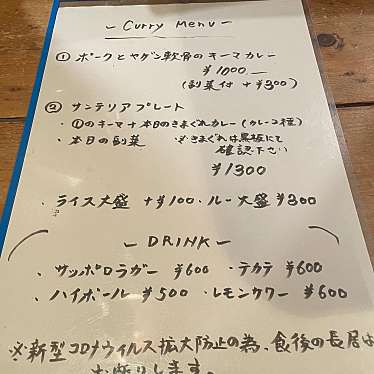 - Curry Menu -
① ポークとヤゲン軟骨のキーマカレー
¥1000-
(副菜付 +¥300)
② サンテリアプレート
・①のキーマ+本日のきまぐれカレー(カレー2種)
・本日の副菜 ※きまぐれは黒板にて
確認下さい
¥1300
・ライス大盛 +¥100・ルー大盛 ¥300
- DRINK -
・サッポロラガー ¥600 ・テカテ ¥600
・ハイボール ¥500 ・レモンサワー ¥600
※新型コロナウィルス拡大防止の為、食後の長居は
お断りします。